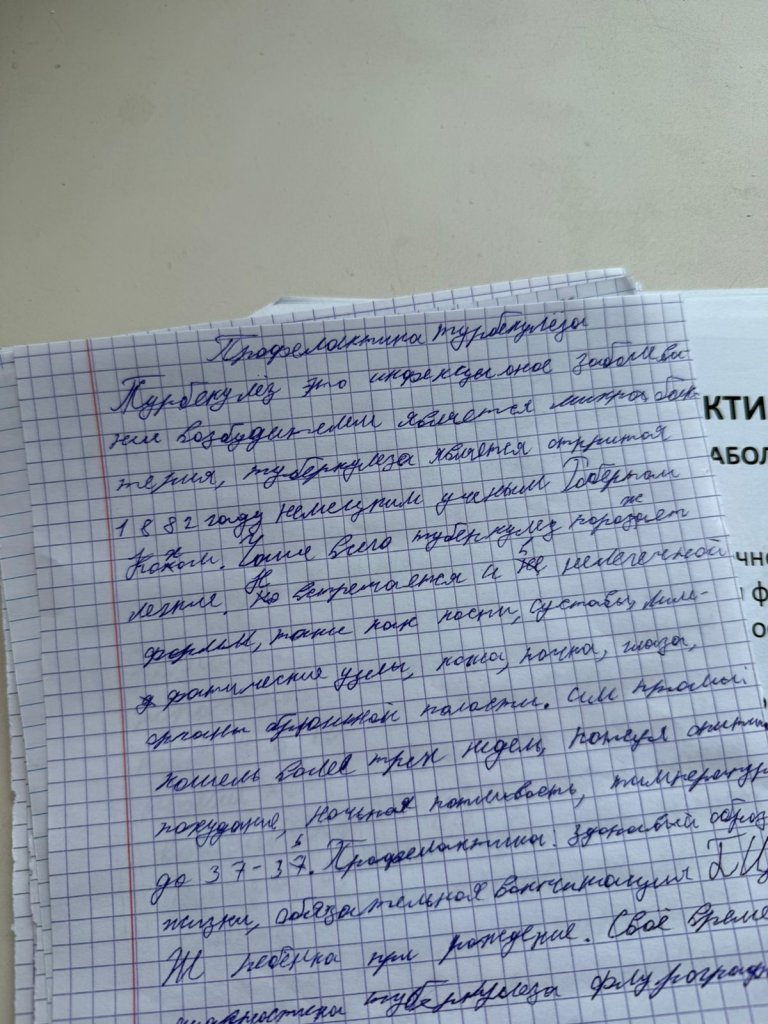 Профелактика турбекулёза
Турбекулёз это инфекцыоное заболева
ние возбудителем является микро бак-
терия, туберкулеза является открытой
1882 году немецким ученым Робертом
Кохом. Чаше всего туберкулез поражает
легкие. Но встречается и в нелегечной
формы, таки как кости, суставы, лим-
фатические узлы, кожа, почка, глаза,
органы брюшной полости.
кошель более трех недель, потеря
похудание, ночьная потливость, температура
до 37-37.5 Профелактика: здоровый образ
жизни, обязательная вакчинация БЦ
Ж ребёнка при рождение. Своё време
туберкулеза флурограф
КТИ
АБОЛ
чно
ф
о